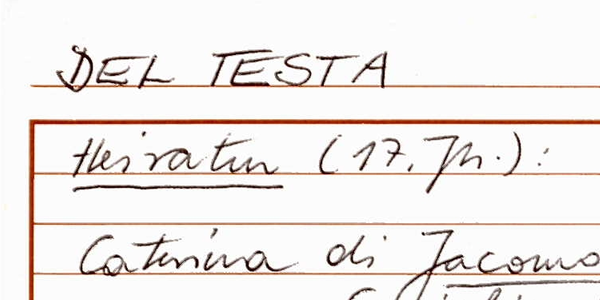 DEL TESTA
Heiraten (17. Jh.):
Caterina di Jacomo